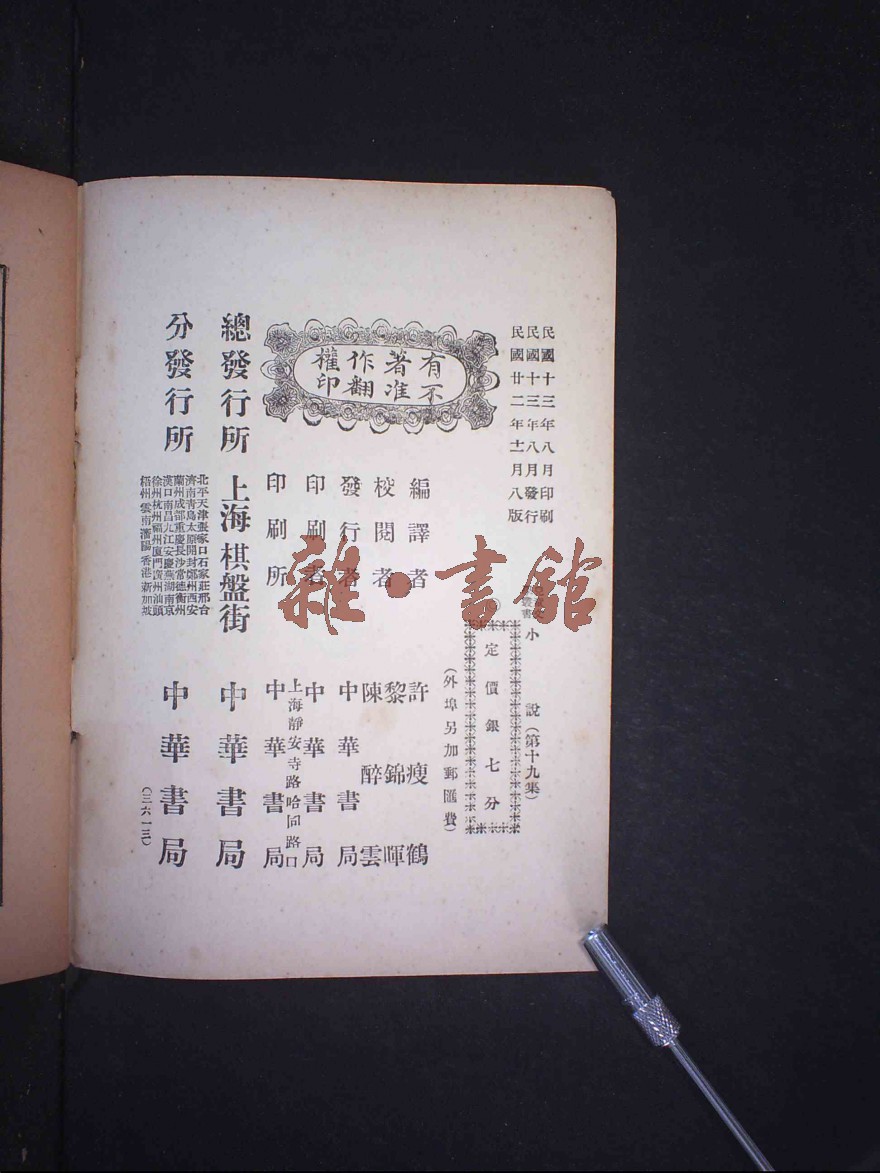 民國十三年八月印刷
民國十三年八月發行
民國廿二年十一月八版
叢書 小說（第十九集）
定價銀七分
（外埠另加郵匯費）
有著作權
不准翻印
編譯者 許瘦鶴
校閱者 黎錦暉
陳醉雲
發行者 中華書局
印刷者 中華書局
上海靜安寺路哈同路口
印刷所 中華書局
總發行所 上海棋盤街 中華書局
分發行所 中華書局
北平天津張家口石家莊邢台
濟南青島太原開封鄭州西安
蘭州成都重慶長沙常德衡州
漢口南昌九江安慶蕪湖南京
徐州杭州福州廈門廣州汕頭
梧州雲南瀋陽香港新加坡
（三六一三）
雜·書館